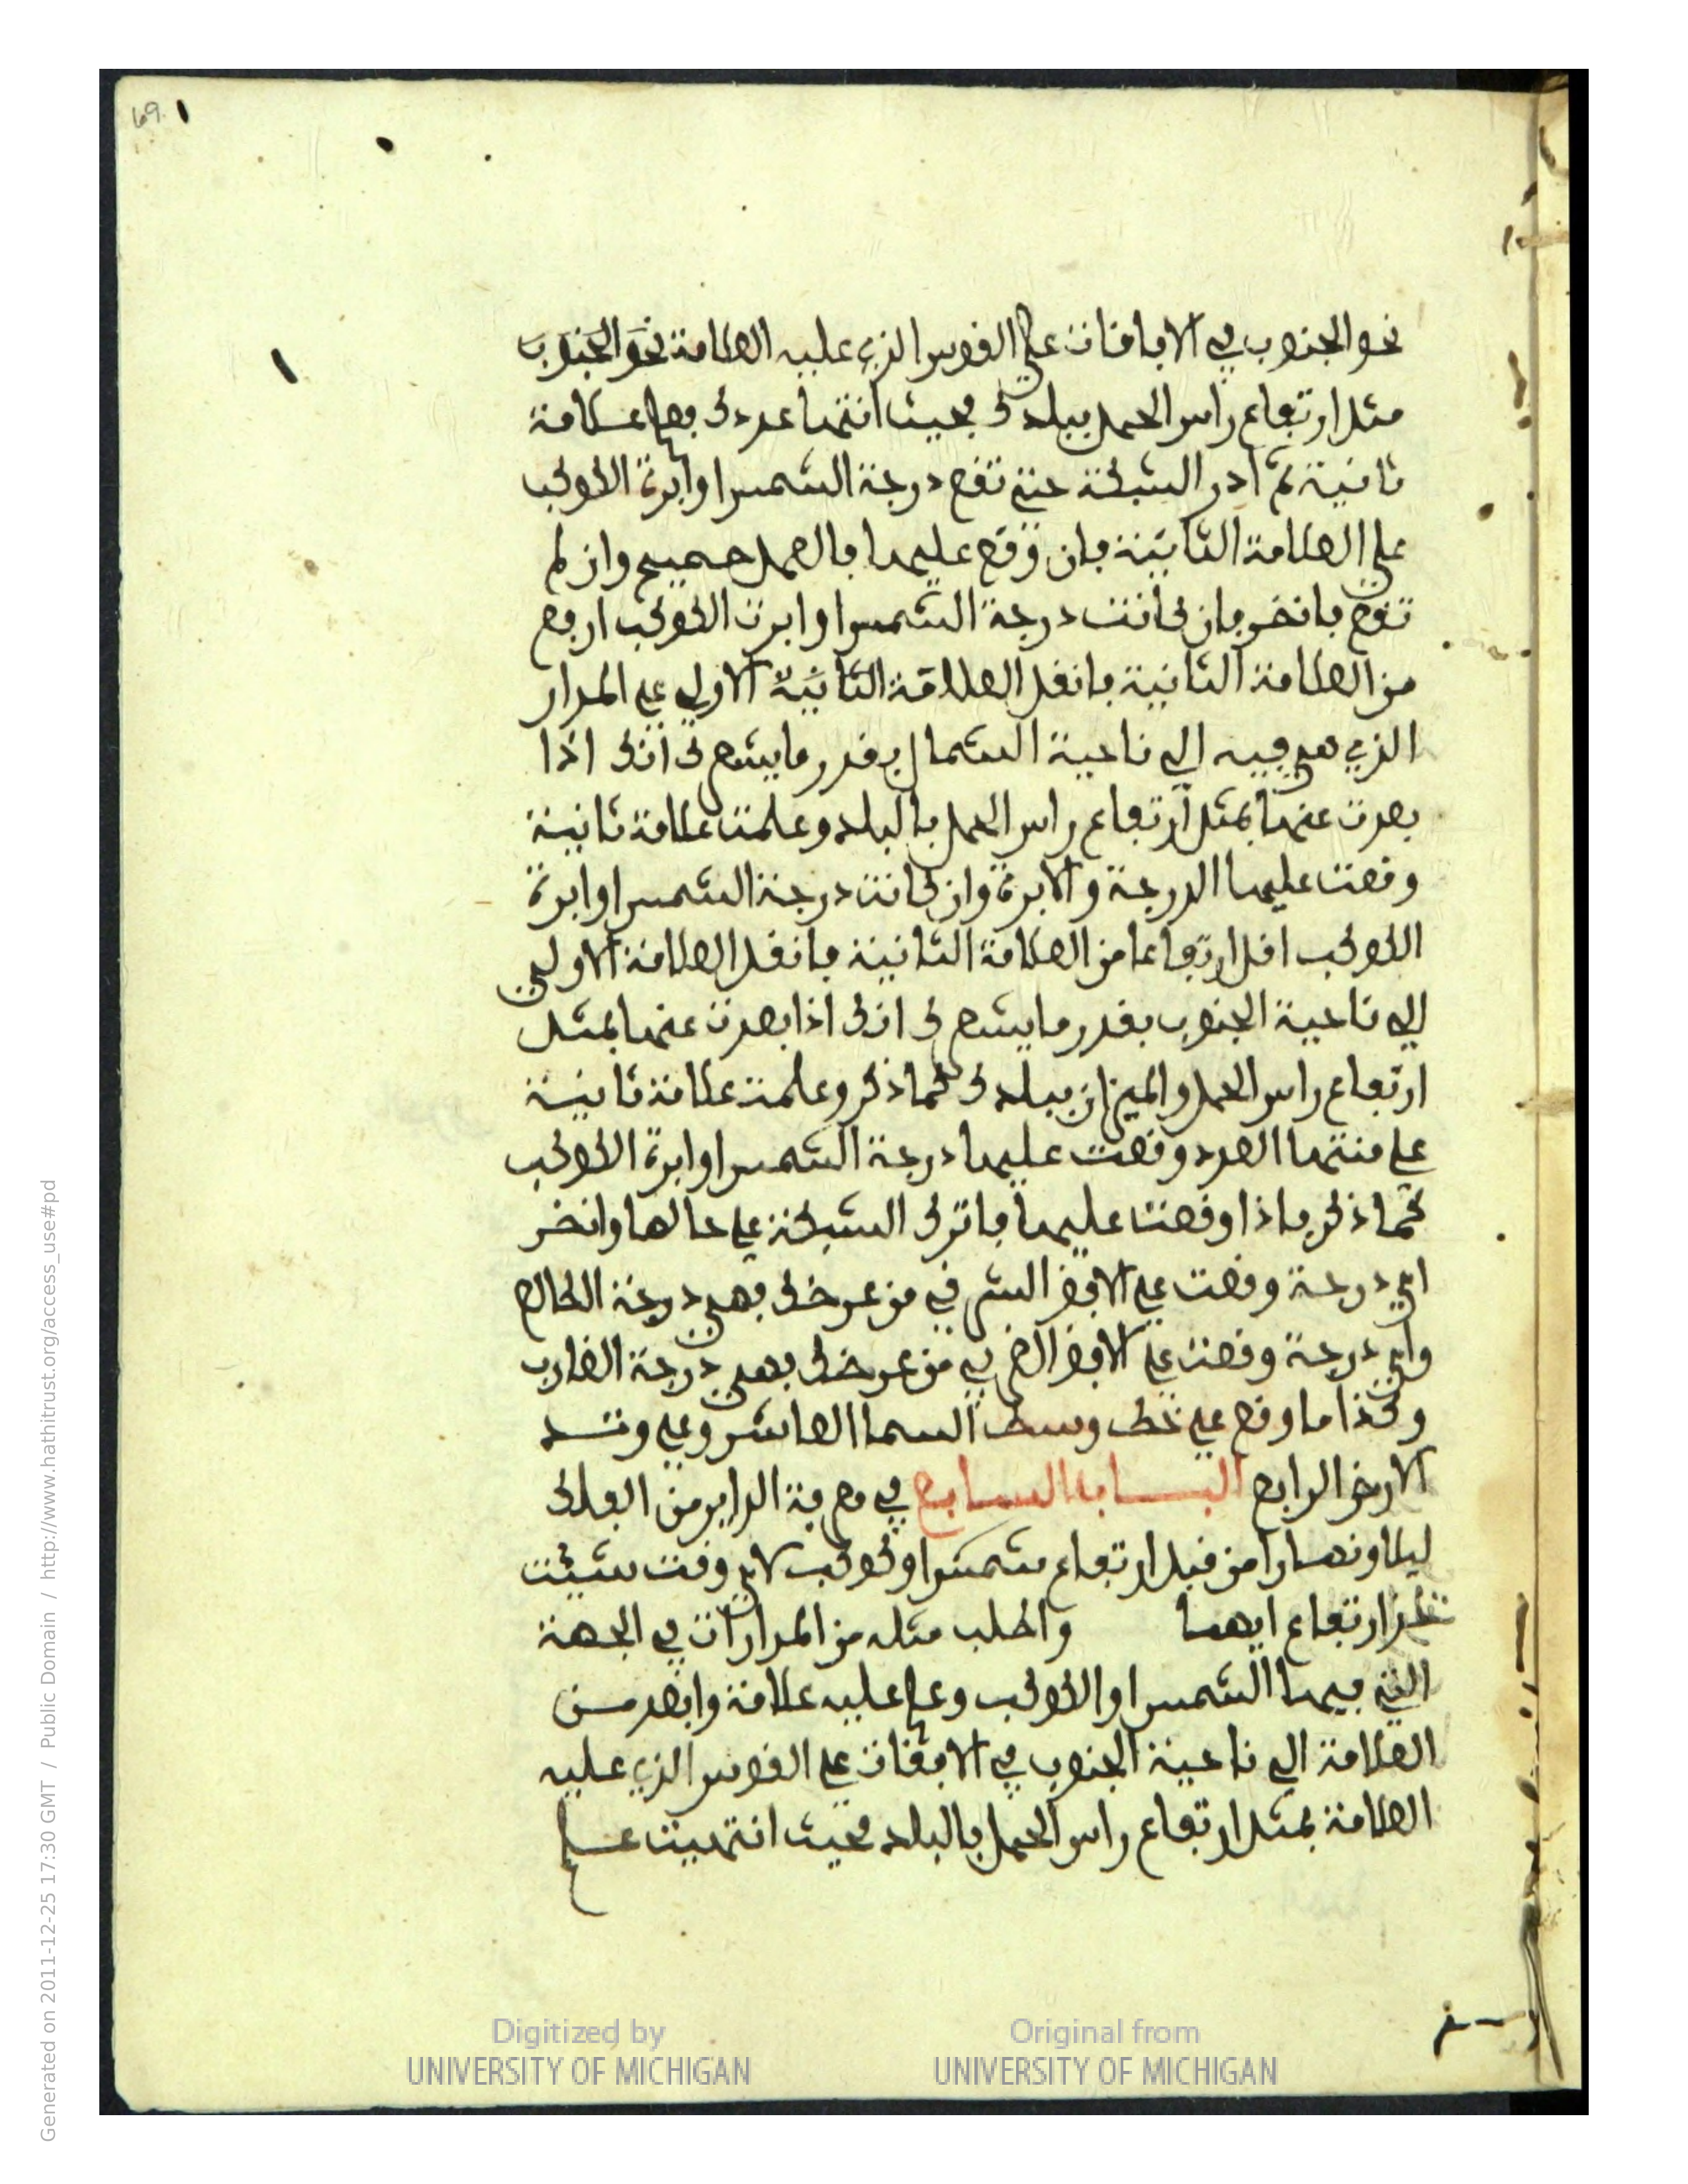 69
نحو الجنوب في الافاقات على القوس الذي عليه العلامة نحو الجنوب
مثل ارتفاع راس الحمل ببلدك بحيث انتها عددك فعلم علامة
ثانية ثم ادر الشبكة حتى تقع درجة الشمس او ابرة الكوكب
على العلامة الثانية فان وقع عليها فالعمل صحيح وان لم
تقع فانظر فان كانت درجة الشمس او ابرت الكوكب ارفع
من العلامة الثانية فانقل العلامة الثانية الاولى على المدار
الذي هي فيه الى ناحية الشمال بقدر ما يشهر لك انك اذا
بعدت عنها بمثل ارتفاع راس الحمل بالبلد وعلمت علامة ثانية
وقعت عليها الدرجة والابرة وان كانت درجة الشمس او ابرة
الكوكب اقل ارتفاعا من العلامة الثانية فانقل العلامة الاولى
الى ناحية الجنوب بقدر ما يشهر لك انك اذا بعدت عنها بمثل
ارتفاع راس الحمل والميزان ببلدك كما ذكر وعلمت علامة ثانية
على منتها العدد وقعت عليها درجة الشمس او ابرة الكوكب
كما ذكر فاذا وقعت عليها فاترك الشبكة على حالها وانظر
اي درجة وقعت على الافق الشرقي من عرضك فهي درجة الطالع
واي درجة وقعت على الافق الغربي من عرضك فهي درجة الغارب
وكذا ما وقع على خط وسط السما العاشر وعلى وتد
الارض الرابع البـاب السابع في معرفة الداير من الفلك
ليلا ونهارا من قبل ارتفاع شمس او كوكب لاي وقت شئت
خذ ارتفاع ايهما واطلب مثله من المدارات في الجهة
التي فيها الشمس او الكوكب وعلم عليه علامة وابعد من
العلامة الى ناحية الجنوب في الافقات على القوس الذي عليه
العلامة بمثل ارتفاع راس الحمل بالبلد فحيث انتهيت علم
Digitized by UNIVERSITY OF MICHIGAN
Original from UNIVERSITY OF MICHIGAN
Generated on 2011-12-25 17:30 GMT / Public Domain / http://www.hathitrust.org/access_use#pd